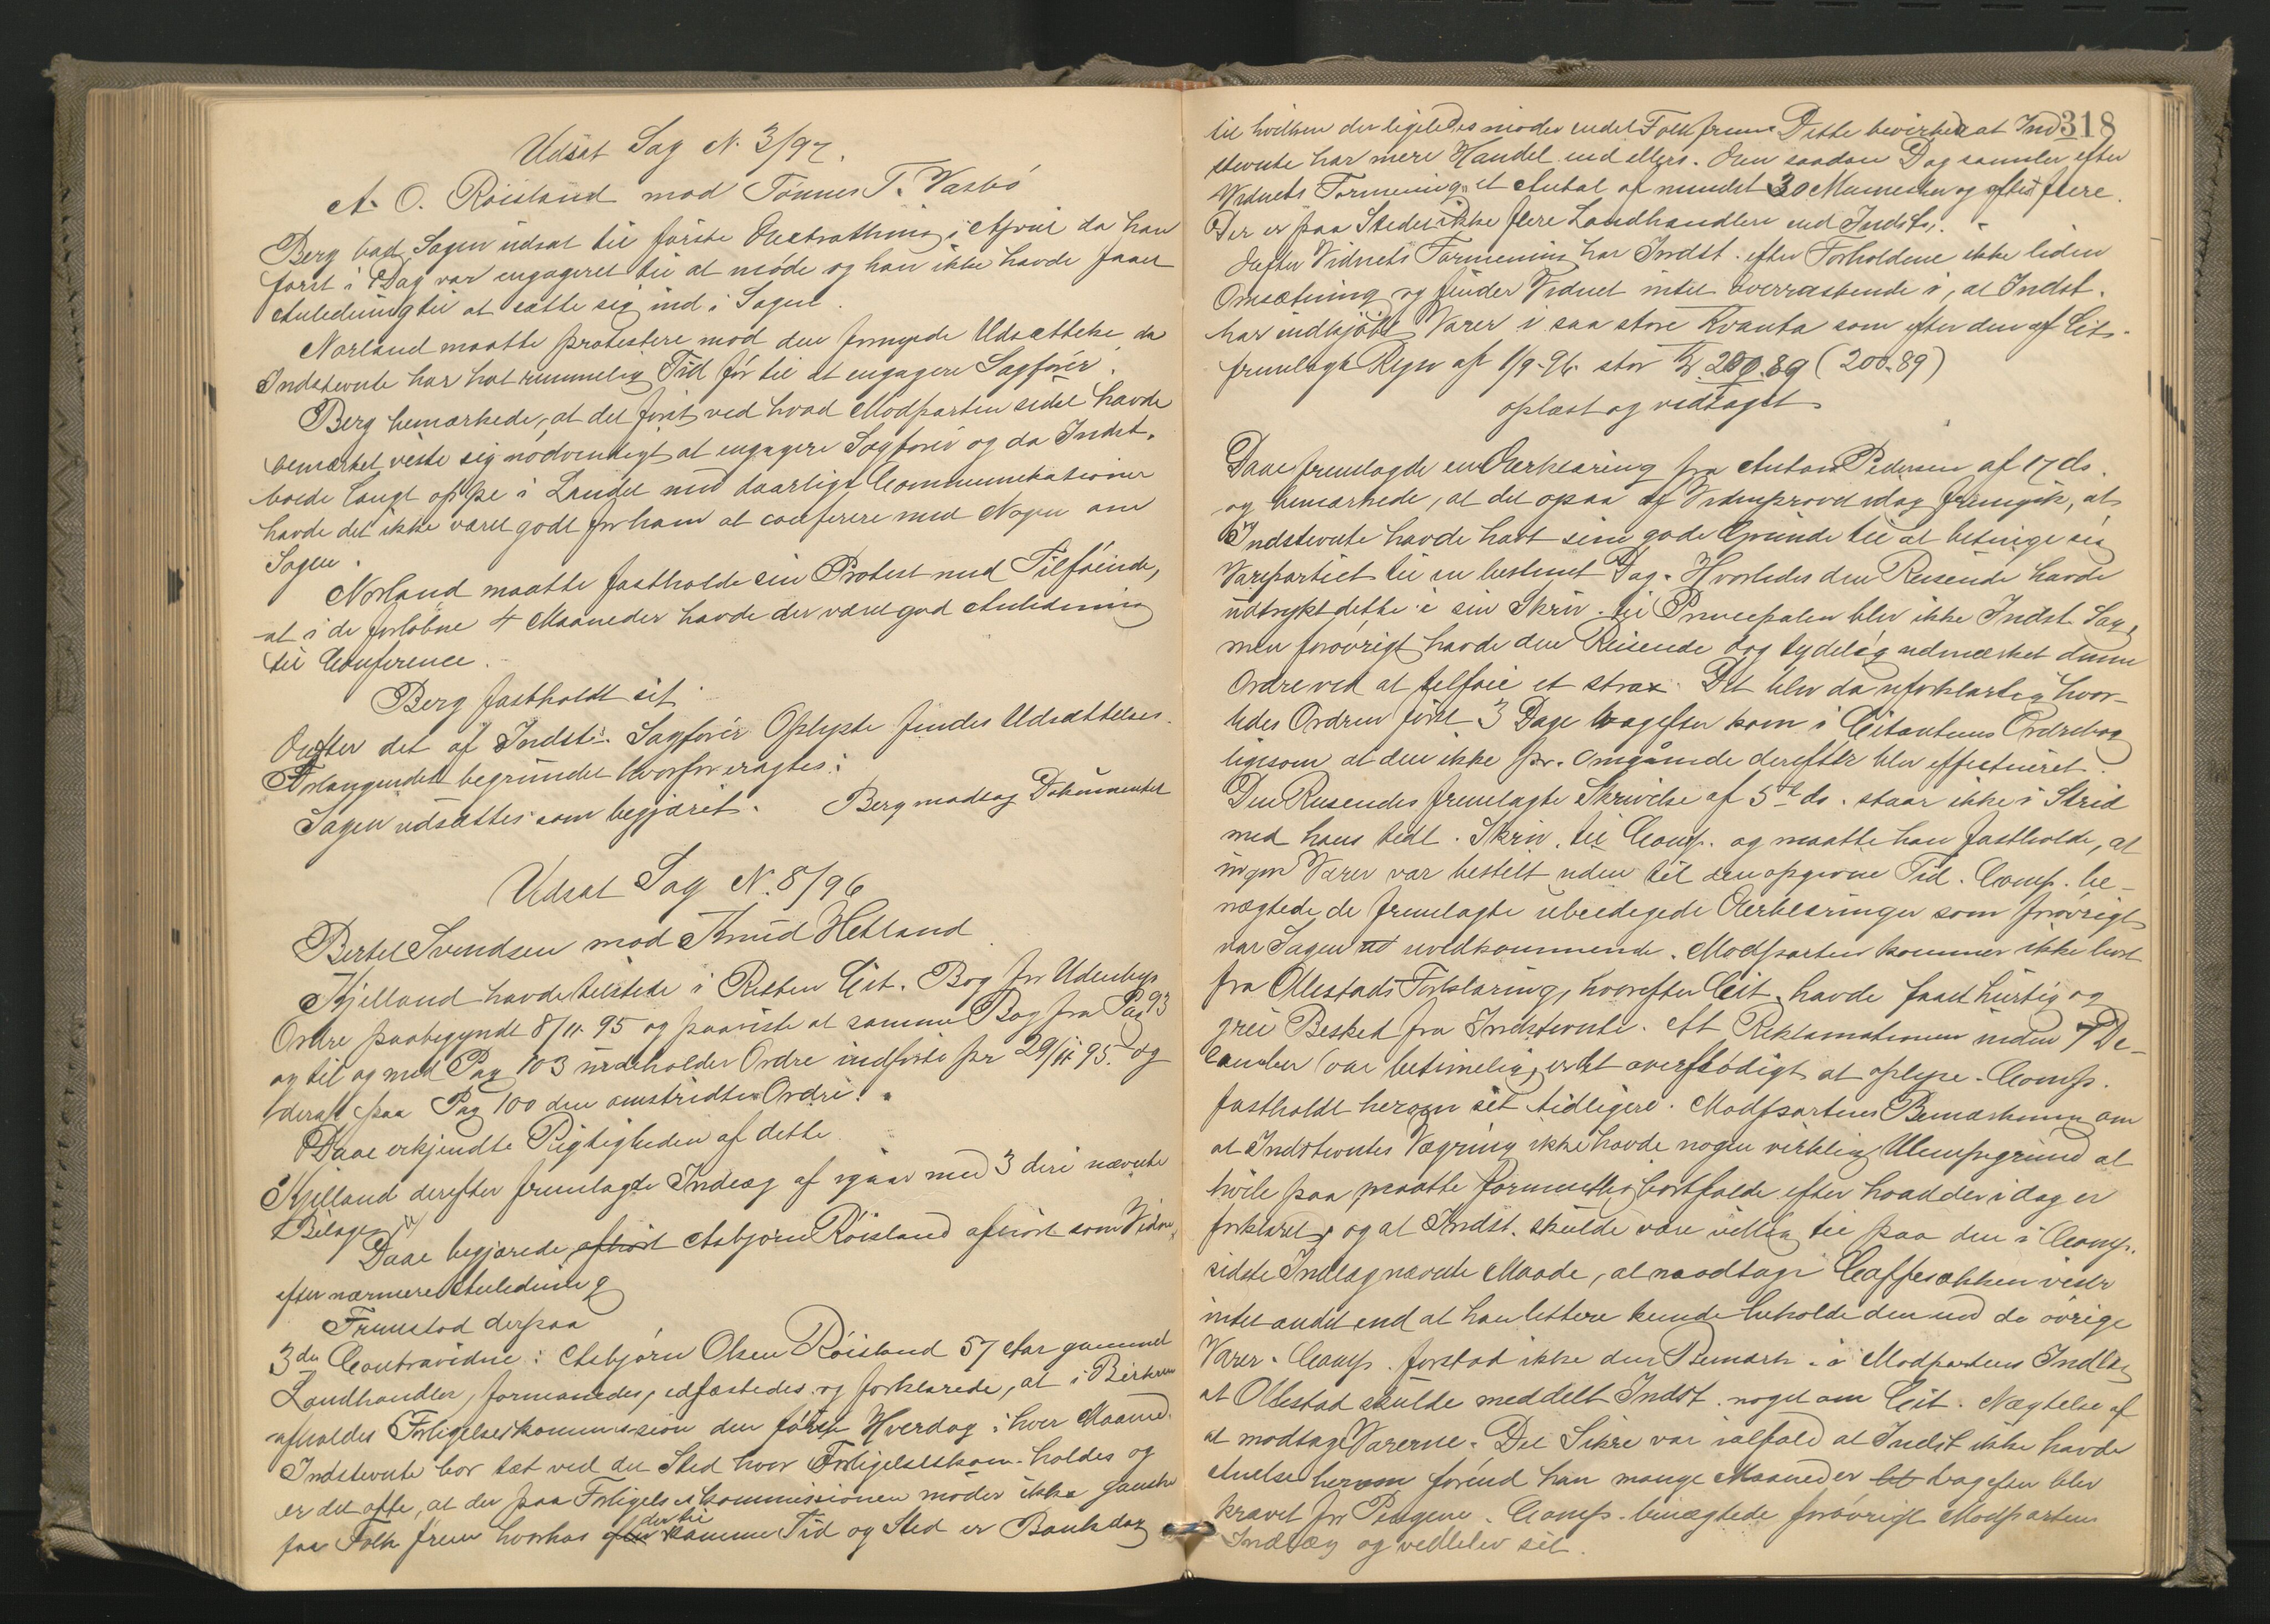 Udsat Sag N. 3/97.
A. O. Röisland mod Tönnes T. Vasbö
Berg bad Sagen udsat til förste Extrathing i April da han
först i Dag var engageret til at möde og han ikke havde faaet
Anledning til at sætte sig ind i Sagen.
Norland maatte protestere mod den fornyede Udsættelse da
Indstevnte har hat rummelig Tid för til at engagere Sagförer.
Berg bemærkede, at det först ved hvad Modparten sidst havde
bemærket viste sig nödvendigt at engagere Sagförer og da Indst.
boede langt oppe i Landet med daarlige Communikationer
havde det ikke været godt for ham at conferere med Nogen om
Sagen.
Norland maatte fastholde sin Protest med Tilföiende,
at i de forlöbne 4 Maaneder havde der været god Anledning
til Conference.
Berg fastholdt sit.
Efter det af Indst. Sagförer Oplyste findes Udsættelses-
Forlangendet begrundet hvorfor eragtes:
Sagen udsættes som begjæret. Berg modtog Dokumentet
Udsat Sag N. 8/96
Bertel Svendsen mod Knud Hetland
Kjelland havde tilstede i Retten Cit. Bog for Udenbys
Ordre paabegyndt 8/11 95 og paaviste at samme Bog fra Pag 93
og til og med Pag 103 indeholder Ordre indförte pr 29/11 95. og
deraf paa Pag 100 den omstridte Ordre.
Daae erkjendte Rigtigheden af dette
Kjelland derefter fremlagde Indlæg af igaar med 3 deri nævnte
Bilage.
Daae begjærede afhört Asbjörn Röisland afhört som Vidne,
efter nærmere Anledning
Fremstod derpaa
3de Contravidne: Asbjörn Olsen Röisland 57 Aar gammel
Landhandler, formanedes, edfæstedes og forklarede, at i Birkrem
afholdes Forligelseskommission den förste Hverdag i hver Maaned.
Indstevnte bor tæt ved det Sted hvor Forligelseskom. holdes og
er det ofte, at der paa Forligelseskommissionen möder ikke ganske
der til
faa Folk frem hvorhos efter samme Tid og Sted er Bankdag
318
til hvilken der ligeledes möder endel Folk frem. Dette bevirker at Ind-
stevnte har mere Handel end ellers. En saadan Dag samler efter
Vidnets Formening et Antal af mindst 30 Mennesker og oftest flere.
Der er paa Stedet ikke flere Landhandlere end Indst.
Efter Vidnets Formening har Indst. efter Forholdene ikke liden
Omsætning og finder Vidnet intet overraskende i, at Indst.
har indkjöbt Varer i saa store Kvanta som efter den af Cit.
fremlagte Regn af 1/9-96 stor Kr 200.89 (200.89)
oplæst og vedtaget
Daae fremlagde en Erklæring fra Anton Pedersen af 17 ds.
og bemærkede, at det ogsaa af Vidneprovet idag fremgik, at
Indstevnte havde havt sine gode Grunde til at betinge sig
Varepartiet til en bestemt Dag. Hvorledes den Reisende havde
udtrykt dette i sin Skriv. til Principalen blev ikke Indst. Sag,
men forövrigt havde den Reisende dog tydelig udmærket denne
Ordre ved at tilföie et strax. Det blev da uforklarlig hvor-
ledes Ordren först 3 Dage bagefter kom i Citantens Ordrebog
ligesom at den ikke pr. omgaaende derefter blev effectueret.
Den Reisendes fremlagte Skrivelse af 5te ds. staar ikke i Strid
med hans tidl. Skriv. til Comp. og maatte han fastholde, at
ingen Varer var bestilt uden til den opgivne Tid. Comp. be-
nægtede de fremlagte ubeedigede Erklæringer som forövrigt
var Sagen uvedkommende. Modparten kommer ikke bort
fra Ollestads Forklaring, hvorefter Cit. havde faaet hurtig og
grei Besked fra Indstevnte. At Reklamationen inden 7 De-
cember var betimelig, er det overflödigt at oplyse. Comp.
fastholdt herom sit tidligere. Modpartens Bemærkning om
at Indstevntes Vægring ikke havde nogen virkelig Ulempegrund at
hvile paa maatte formentlig bortfalde efter hvad der i dag er
forklaret, og at Indst. skulde være villig til paa den i Comp.
sidste Indlæg nævnte Maade, at modtage Caffesækken viser
intet andet end at han lettere kunde beholde den end de övrige
Varer. Comp. forstod ikke den Bemærk. i Modpartens Indlæg
at Ollestad skulde meddelt Indst. noget om Cit. Nægtelse af
at modtage Varerne. Det Sikre var ialfald at Indst ikke havde
Anelse herom förend han mange Maaneder bagefter blev
krævet for Pengene. Comp. benægtede forövrigt Modpartens
Indlæg og vedblev sit.